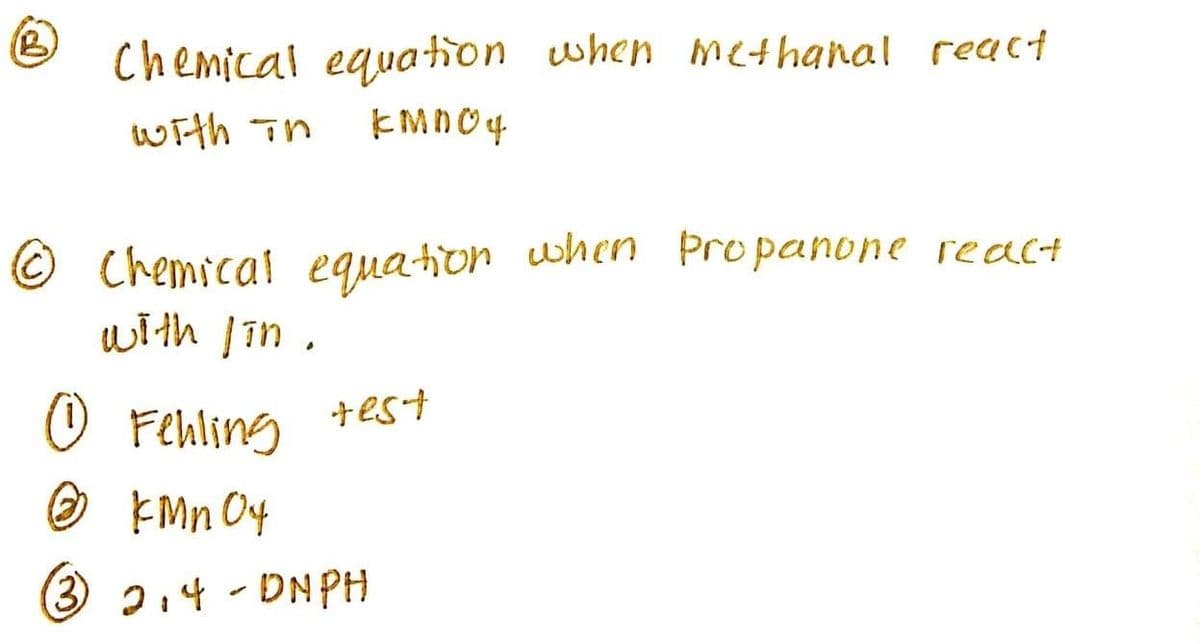 Ⓑ Chemical equation when methanal react
with in KMnO4
Ⓒ Chemical equation when propanone react
with /in.
① Fehling test
② KMnO4
③ 2,4-DNPH